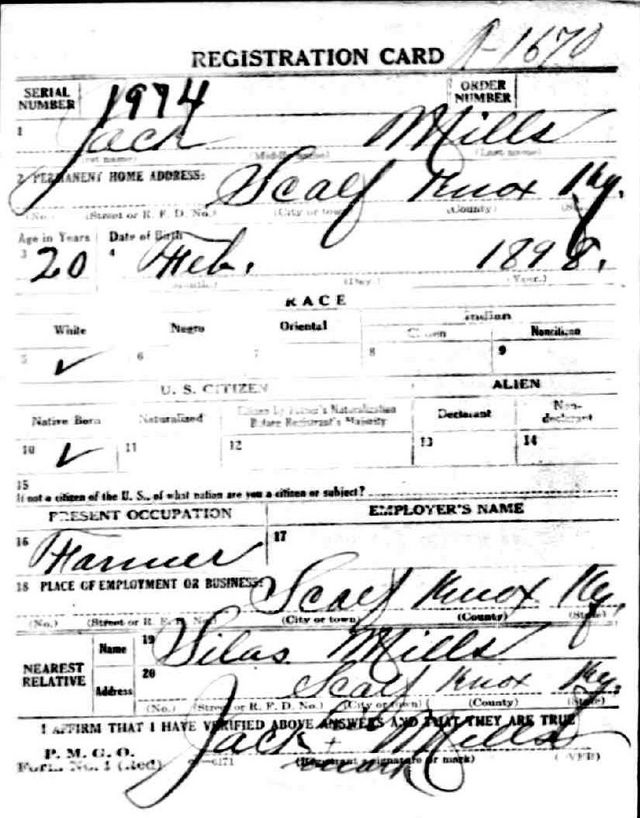 REGISTRATION CARD A-1670
SERIAL NUMBER 1974 ORDER NUMBER
1 Jack Mills
(First name) (Middle name) (Last name)
2 PERMANENT HOME ADDRESS: Scalf Knox Ky.
(No.) (Street or R. F. D. No.) (City or town) (County) (State)
Age in Years Date of Birth
3 20 4 Feb. 1898.
(Day.) (Year.)
RACE
White Negro Oriental Indian
Citizen Noncitizen
5 ✓ 6 7 8 9
U. S. CITIZEN ALIEN
Native Born Naturalized Citizen by Father's Naturalization Before Registrant's Majority Declarant Non-declarant
10 ✓ 11 12 13 14
15
If not a citizen of the U. S., of what nation are you a citizen or subject?
PRESENT OCCUPATION EMPLOYER'S NAME
16 Farmer 17
18 PLACE OF EMPLOYMENT OR BUSINESS: Scalf Knox Ky.
(No.) (Street or R. F. D. No.) (City or town) (County) (State)
NEAREST RELATIVE Name 19 Silas Mills
Address 20 Scalf Knox Ky.
(No.) (Street or R. F. D. No.) (City or town) (County) (State)
I AFFIRM THAT I HAVE VERIFIED ABOVE ANSWERS AND THAT THEY ARE TRUE
P. M. G. O.
Form No. 1 (Red) Jack + Mills
mark
(Registrant signature or mark) (OVER)